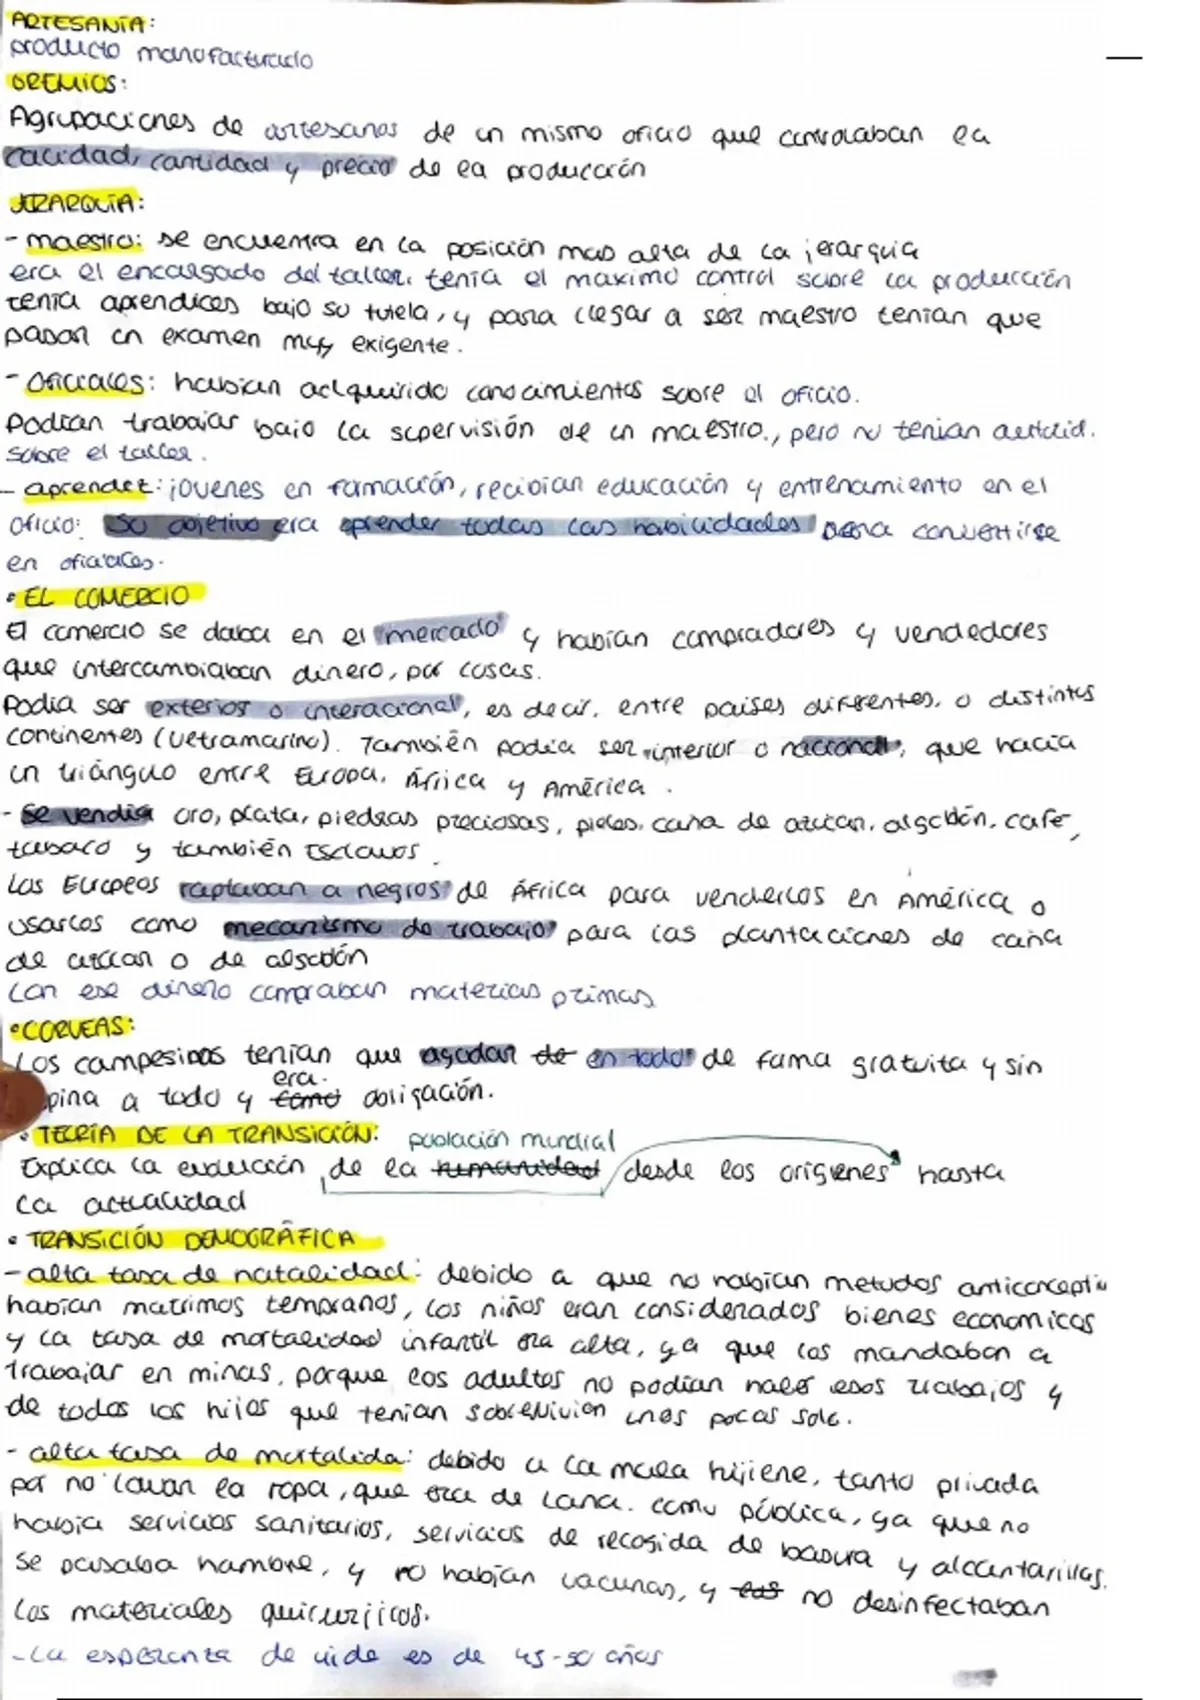 ARTESANÍA:
producto manofacturado
GREMIOS:
Agrupaciones de artesanos de un mismo oficio que controlaban la
calidad, cantidad y precio de la producción
JERARQUÍA:
- maestro: se encuentra en la posición mas alta de la jerarquia
era el encargado del taller, tenía el maximo control sobre la producción
tenía aprendices bajo su tutela, y para llegar a ser maestro tenían que
pasar un examen muy exigente.
- Oficiales: habían adquirido conocimientos sobre el oficio.
Podían trabajar bajo la supervisión de un maestro., pero no tenían autorid.
sobre el taller.
- aprendiz: jóvenes en formación, recibían educación y entrenamiento en el
oficio: Su objetivo era aprender todas las habilidades para convertirse
en oficiales.
• EL COMERCIO
El comercio se daba en el mercado y habían compradores y vendedores
que intercambiaban dinero, por cosas.
Podía ser exterior o interacional, es decir, entre países diferentes, o distintos
continentes (Ultramarino). También podía ser interior o nacional, que hacía
un triángulo entre Europa, África y América.
- Se vendía oro, plata, piedras preciosas, pieles, caña de azúcar, algodón, café,
tabaco y también Esclavos.
Los Europeos raptaban a negros de África para venderlos en América o
usarlos como mecanismo de trabajo para las plantaciones de caña
de azúcar o de algodón
Con ese dinero compraban materias primas
• CORVEAS:
Los campesinos tenían que ayudar de en todo de forma gratuita y sin
pina a todo y como era obligación.
• TEORÍA DE LA TRANSICIÓN: población mundial
Explica la evolución de la humanidad desde los orígenes hasta
la actualidad
• TRANSICIÓN DEMOGRÁFICA
- alta tasa de natalidad: debido a que no habían metodos anticoncepti
habían matrimos tempranos, los niños eran considerados bienes economicos
y la tasa de mortalidad infantil era alta, ya que los mandaban a
trabajar en minas, porque los adultos no podían hacer esos trabajos y
de todos los hijos que tenían sobrevivían unos pocos solo.
- alta tasa de mortalida: debido a la mala hijiene, tanto privada
por no lavar la ropa, que era de lana. como pública, ya que no
había servicios sanitarios, servicios de recogida de basura y alcantarillas.
Se pasaba hambre, y no habían vacunas, y no desinfectaban
los materiales quirurjicos.
- La esperanza de vida es de 45-50 años